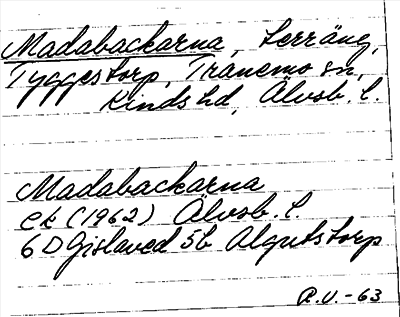 Madabackarna, terräng,
Tyggestorp, Tranemo sn,
Kinds hd, Älvsb. l.
Madabackarna
ek (1962) Älvsb. l.
6 D Gislaved 5b Algutstorp
R.V.-63